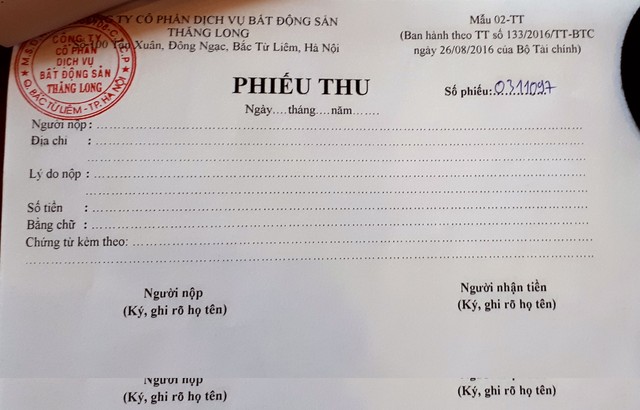 CÔNG TY CỔ PHẦN DỊCH VỤ BẤT ĐỘNG SẢN
THĂNG LONG
Xuân, Đông Ngạc, Bắc Từ Liêm, Hà Nội
CÔNG TY
CỔ PHẦN
DỊCH VỤ
BẤT ĐỘNG SẢN
THĂNG LONG
Q. BẮC TỪ LIÊM - TP. HÀ NỘI
Mẫu 02-TT
(Ban hành theo TT số 133/2016/TT-BTC
ngày 26/08/2016 của Bộ Tài chính)
PHIẾU THU
Số phiếu: 0311097
Ngày....tháng....năm.......
Người nộp :
Địa chỉ :
Lý do nộp :
Số tiền :
Bằng chữ :
Chứng từ kèm theo:
Người nộp
(Ký, ghi rõ họ tên)
Người nhận tiền
(Ký, ghi rõ họ tên)
Người nộp
(Ký, ghi rõ họ tên)
(Ký, ghi rõ họ tên)